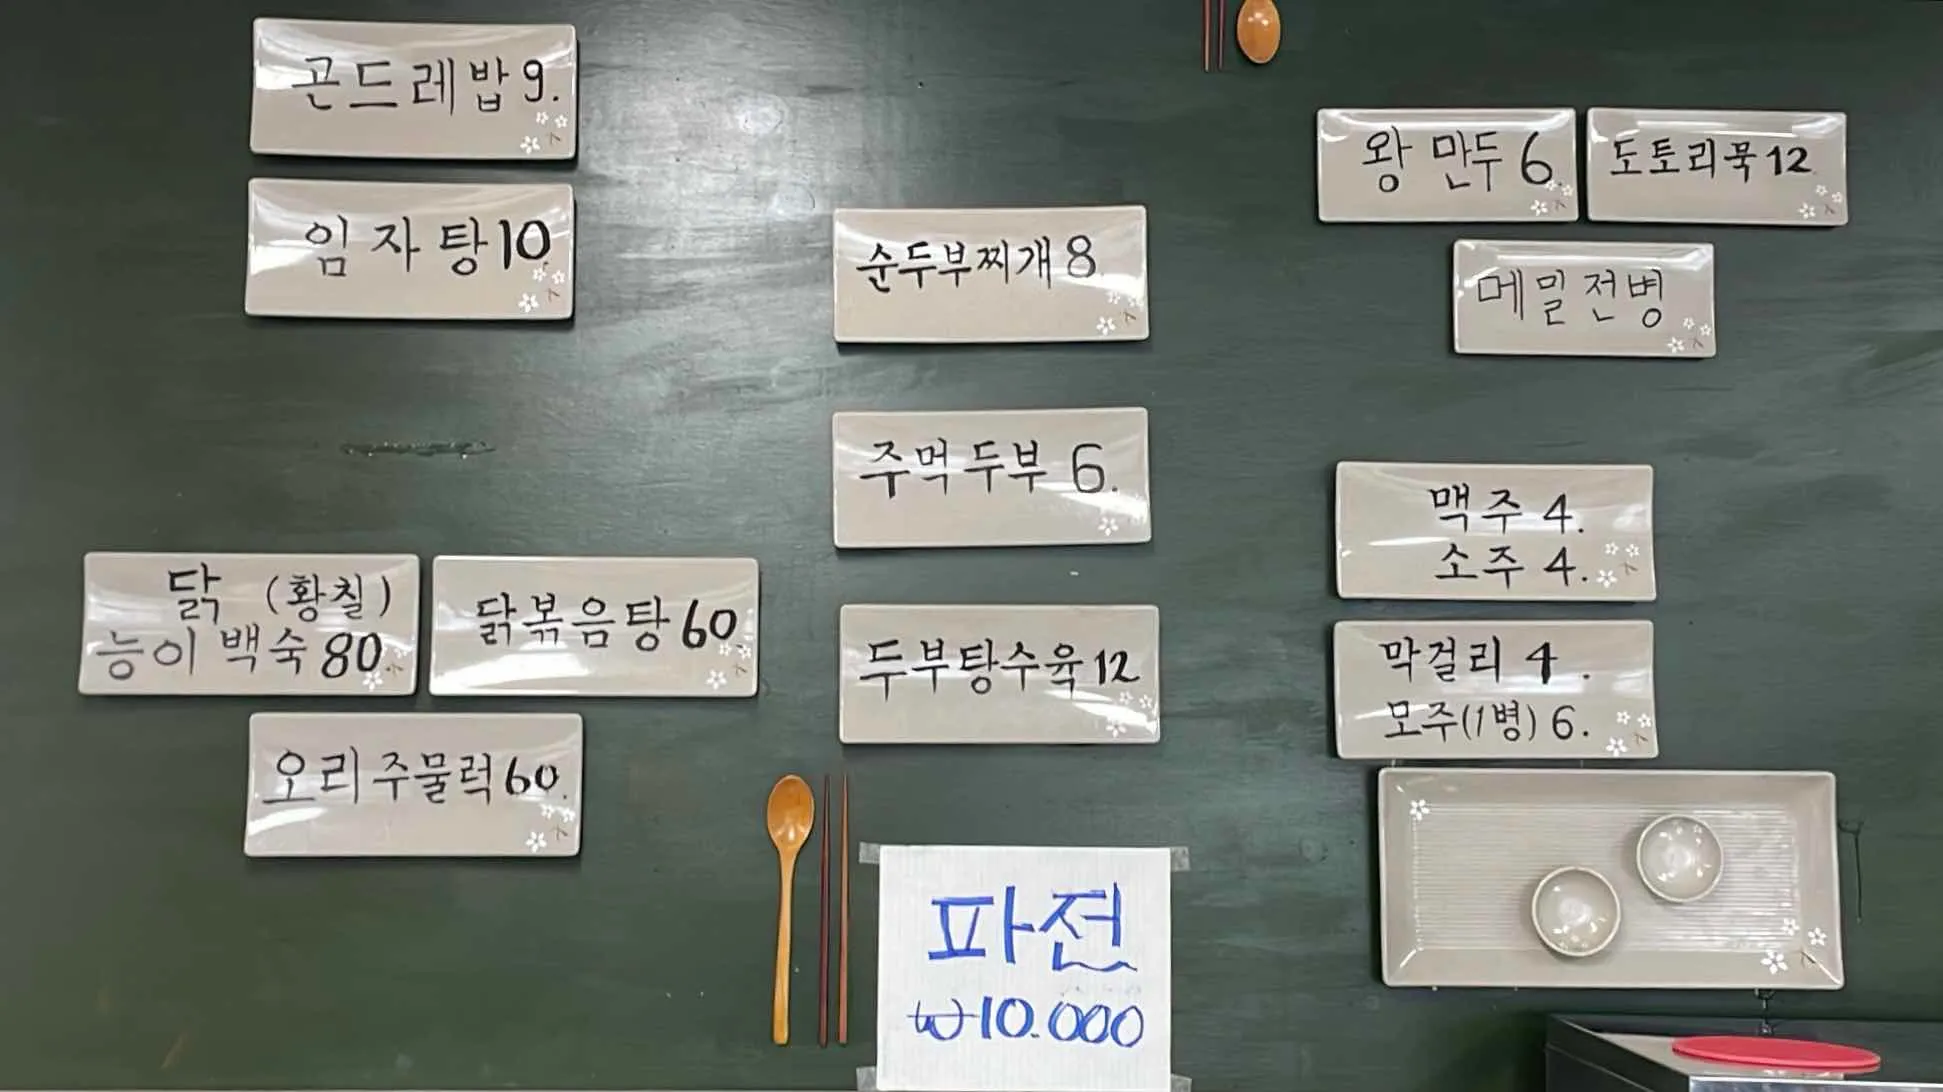 곤드레밥 9.
임자탕 10.
닭 (황칠)
능이백숙 80.
닭볶음탕 60
오리주물럭 60.
순두부찌개 8
주먹두부 6.
두부탕수육 12
파전
₩10.000
왕만두 6.
도토리묵 12
메밀전병
맥주 4.
소주 4.
막걸리 4.
모주(1병) 6.